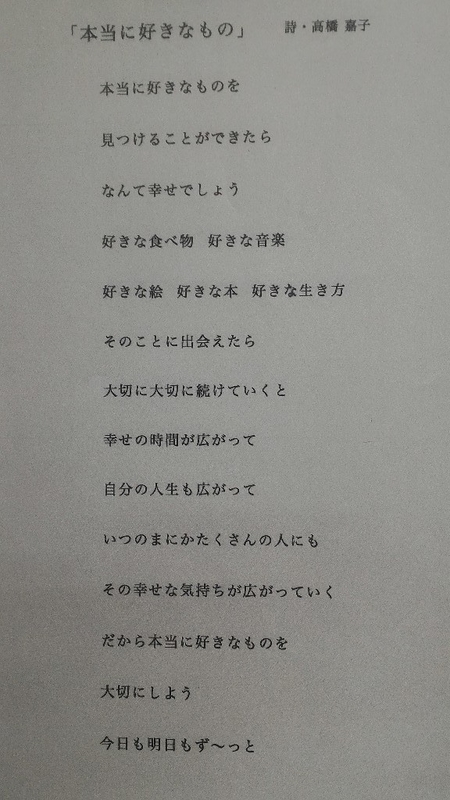 「本当に好きなもの」 詩・高橋 嘉子
本当に好きなものを
見つけることができたら
なんて幸せでしょう
好きな食べ物 好きな音楽
好きな絵 好きな本 好きな生き方
そのことに出会えたら
大切に大切に続けていくと
幸せの時間が広がって
自分の人生も広がって
いつのまにかたくさんの人にも
その幸せな気持ちが広がっていく
だから本当に好きなものを
大切にしよう
今日も明日もず〜っと